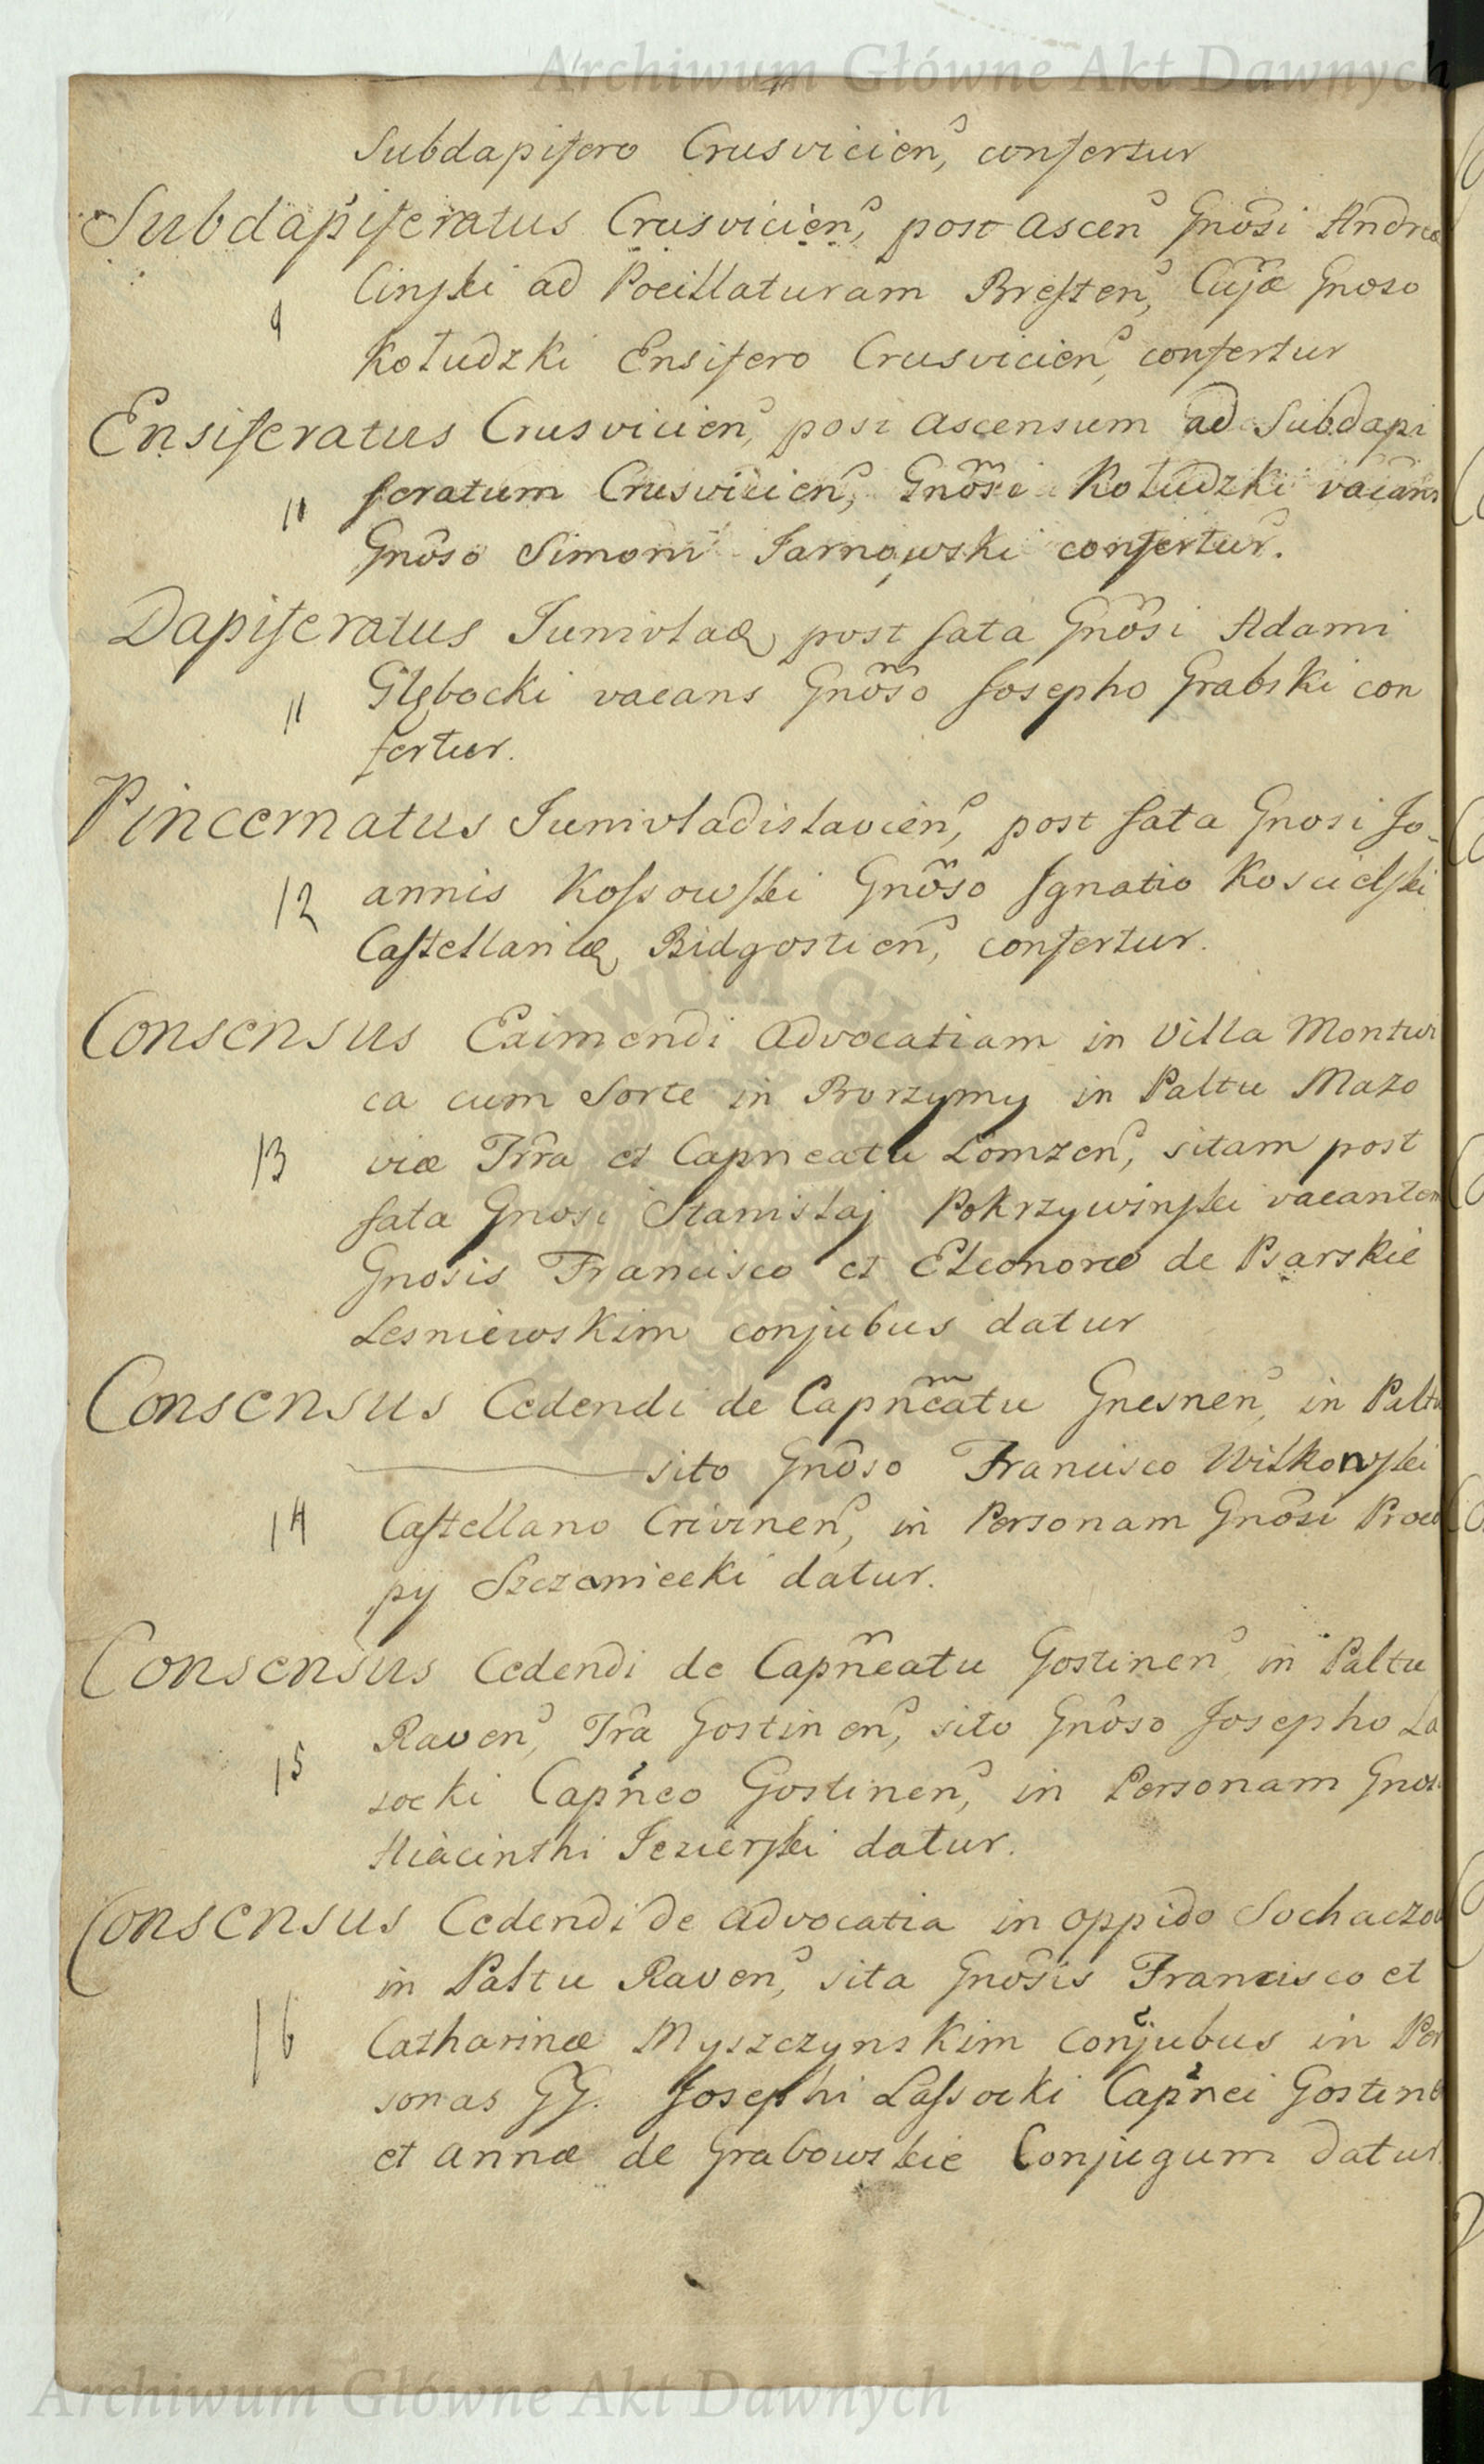 Archiwum Główne Akt Dawnych
Subdapifero Crusvicien, confertur
Subdapiferatus Crusvicien, post ascen Gnosi Andreæ
Cinski ad Pocillaturam Bresten, Cujæ Gnoso
9
Kołudzki Ensifero Crusvicien, confertur
Ensiferatus Crusvicien, post ascensum ad Subdapi
feratum Crusvicien, Gnosi Kołudzki vacans
10
Gnoso Simoni Jarnowski confertur.
Dapiferatus Junivlaæ, post fata Gnosi Adami
Głębocki vacans Gnoso Josepho Grabski con
11
fertur.
Pincernatus Junivladislavien, post fata Gnosi Jo-
annis Kossowski Gnoso Ignatio Koscielski
12
Castellanicæ Bidgostien, confertur.
Consensus Eximendi advocatiam in Villa Montwi
ca cum Sorte in Borzymy in Paltu Mazo
13
viæ Trra et Capneatu Lomzen, sitam post
fata Gnosi Stanislaj Pokrzywinski vacantem
Gnosis Francisco et Eleonoræ de Psarskie
Lesniewskim conjubus datur
Consensus Cedendi de Capneatu Gnesnen, in Paltu
sito Gnoso Francisco Wilkonski
14
Castellano Crivinen, in Personam Gnosi Proco
py Szczaniecki datur.
Consensus Cedendi de Capneatu Gostinen in Paltu
Raven, Tra Gostinen, sito Gnoso Josepho La
15
socki Capneo Gostinen, in Personam Gnosi
Hiacinthi Jezierski datur.
Consensus Cedendi de advocatia in oppido Sochaczov
in Paltu Raven, sita Gnosis Francisco et
16
Catharinæ Myszczynskim conjubus in Per
sonas GG. Josephi Lassocki Capnei Gostinen
et annæ de Grabowskie Conjugum datur
Archiwum Główne Akt Dawnych